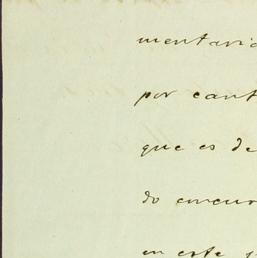 mentario
por cant
que es de
do concur
en este